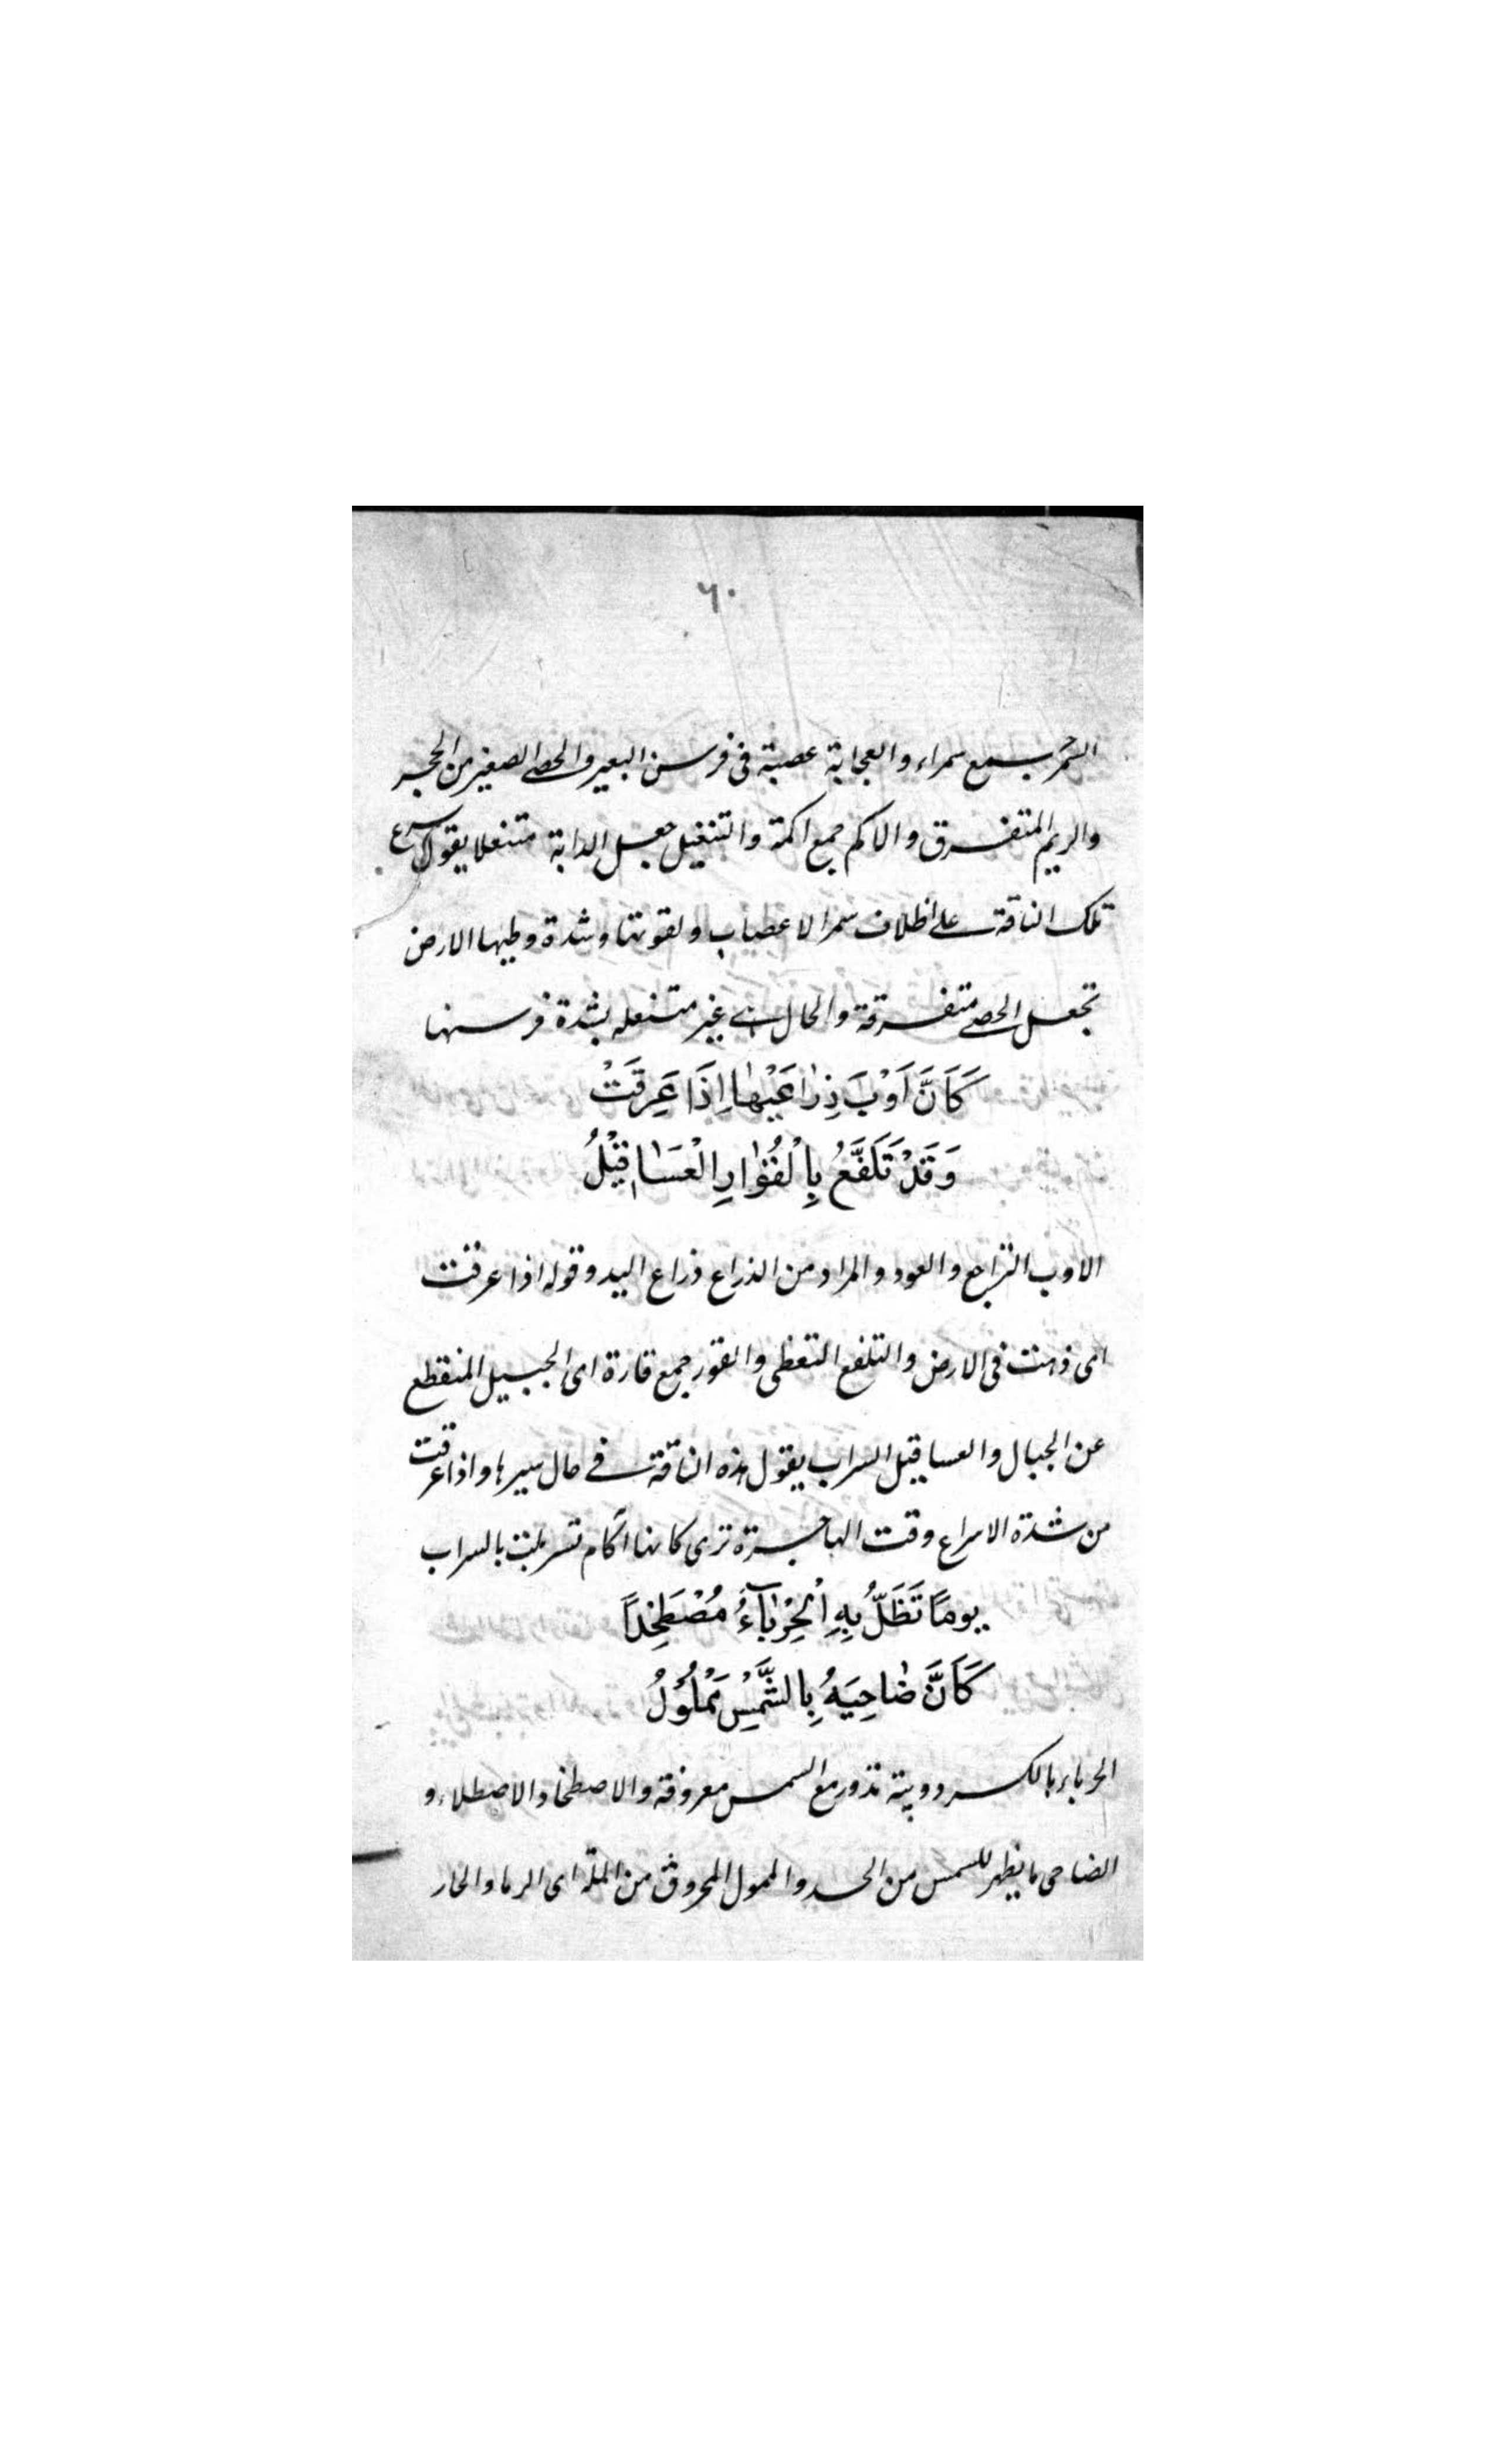 ٦٠
السمر جمع سمراء والعجاية عصبة فى فرسن البعير والحصا الصغير من الحجر
والريم المتفرق والاكم جمع اكمة والتنغيل جعل الدابة متنعلا يقول تسرع
تلك الناقة على اظلاف سمر الاعصاب ولقوتها وشدة وطيها الارض
تجعل الحصى متفرقة والحال غير متنعله لشدة فرسنها
كَاَنَّ اَوْبَ ذِرٰاعَيْهٰا اِذَا عَرِقَتْ
وَقَدْ تَلَفَّعُ بِالْقُوٰارِ الْعَسٰاقِيْلُ
الاوب التراجع والعود والمراد من الذراع ذراع اليد وقوله اذا عرقت
اى ذهنت فى الارض والتلفع التغطى والقور جمع قارة اى الجبيل المنقطع
عن الجبال والعساقيل السراب يقول هذه الناقة فى حال سيرها واذا عرقت
من شدة الاسراع وقت الهاجرة ترى كانها آكام تسربلت بالسراب
يومًا تَظَلُّ بِهِ الْحِرْبٰآءُ مُصْطَخِدًا
كَاَنَّ ضٰاحِيَهُ بِالشَّمْسِ مَمْلُوْلُ
الحرباء بالكسر دويبة تدور مع الشمس معروفة والاصطخاد الاصطلاء و
الضاحى ما يظهر للشمس من الجسد والمملول المحروق من الملة اى الرماد الحار